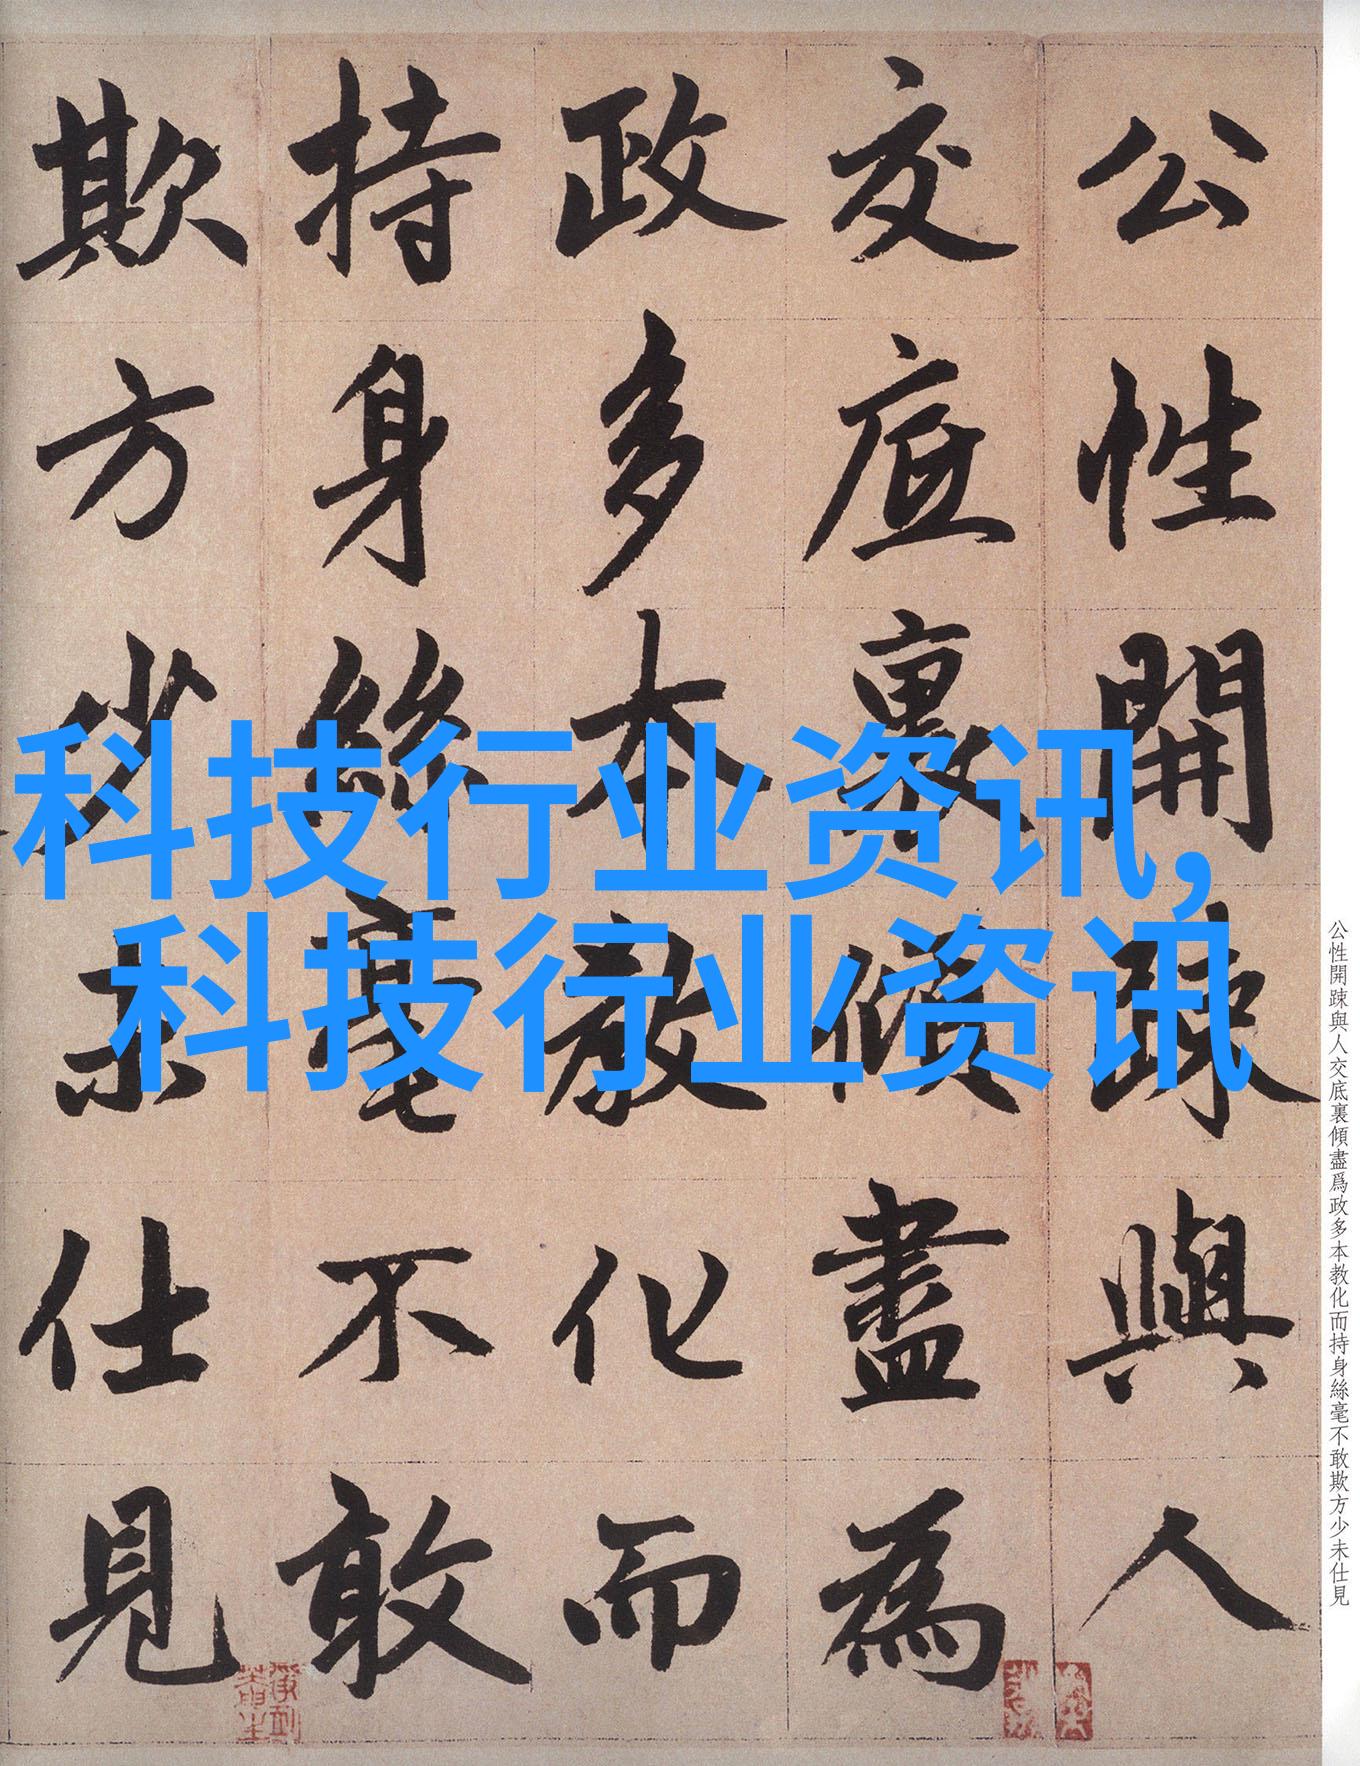 公性開踈與人
交底裏傾盡為
政多本教化而
持身絲毫不敢
欺方少未仕見
科技行业资讯,
科技行业资讯
公性開踈與人交底裏傾盡爲政多本教化而持身絲毫不敢欺方少未仕見